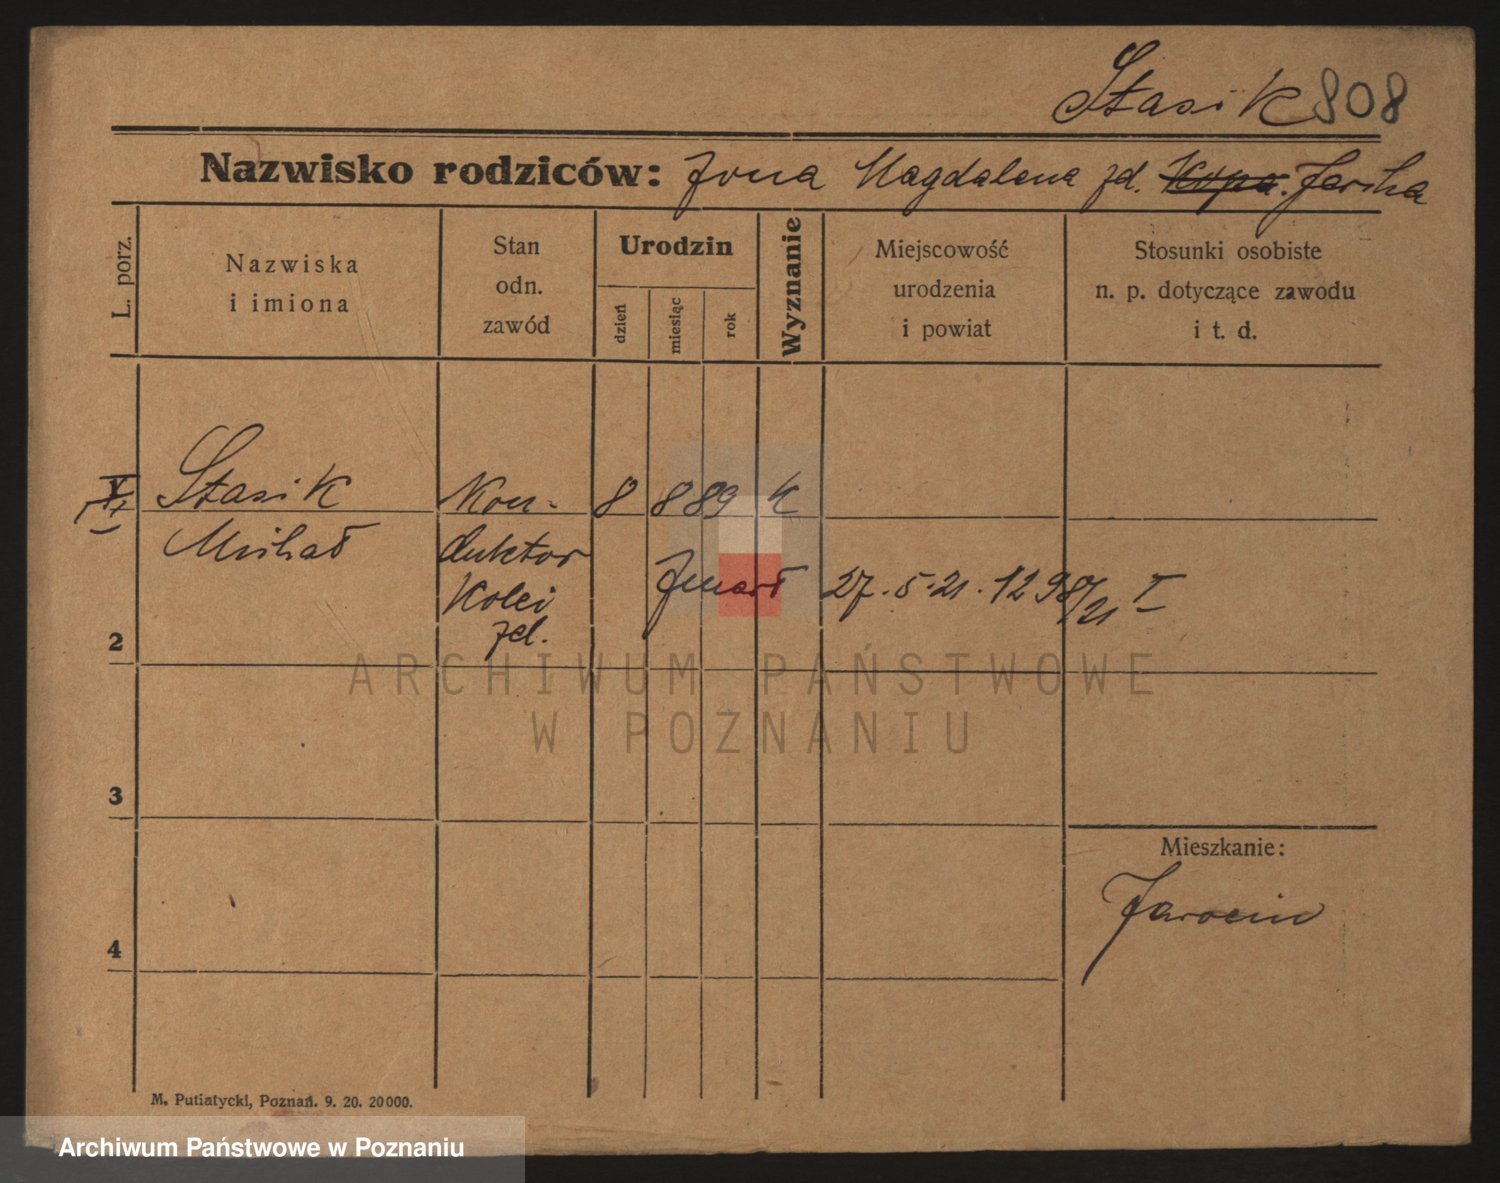 Stasik 808
Nazwisko rodziców: Żona Magdalena zd. Kopa. Jercha
L. porz.
Nazwiska
i imiona
Stan
odn.
zawód
Urodzin
dzień
miesiąc
rok
Wyznanie
Miejscowość
urodzenia
i powiat
Stosunki osobiste
n. p. dotyczące zawodu
i t. d.
Stasik Kon- 8 8 89 k
Michał duktor
Zmarł 27.5.21. 1298/21 I
Kolei
żel.
2
ARCHIWUM PAŃSTWOWE
W POZNANIU
3
Mieszkanie:
Jarocin
4
M. Putiatycki, Poznań. 9. 20. 20000.
Archiwum Państwowe w Poznaniu